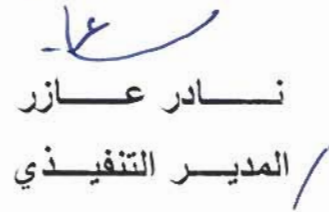 نــــادر عــــازر
المديـــر التنفيـــذي